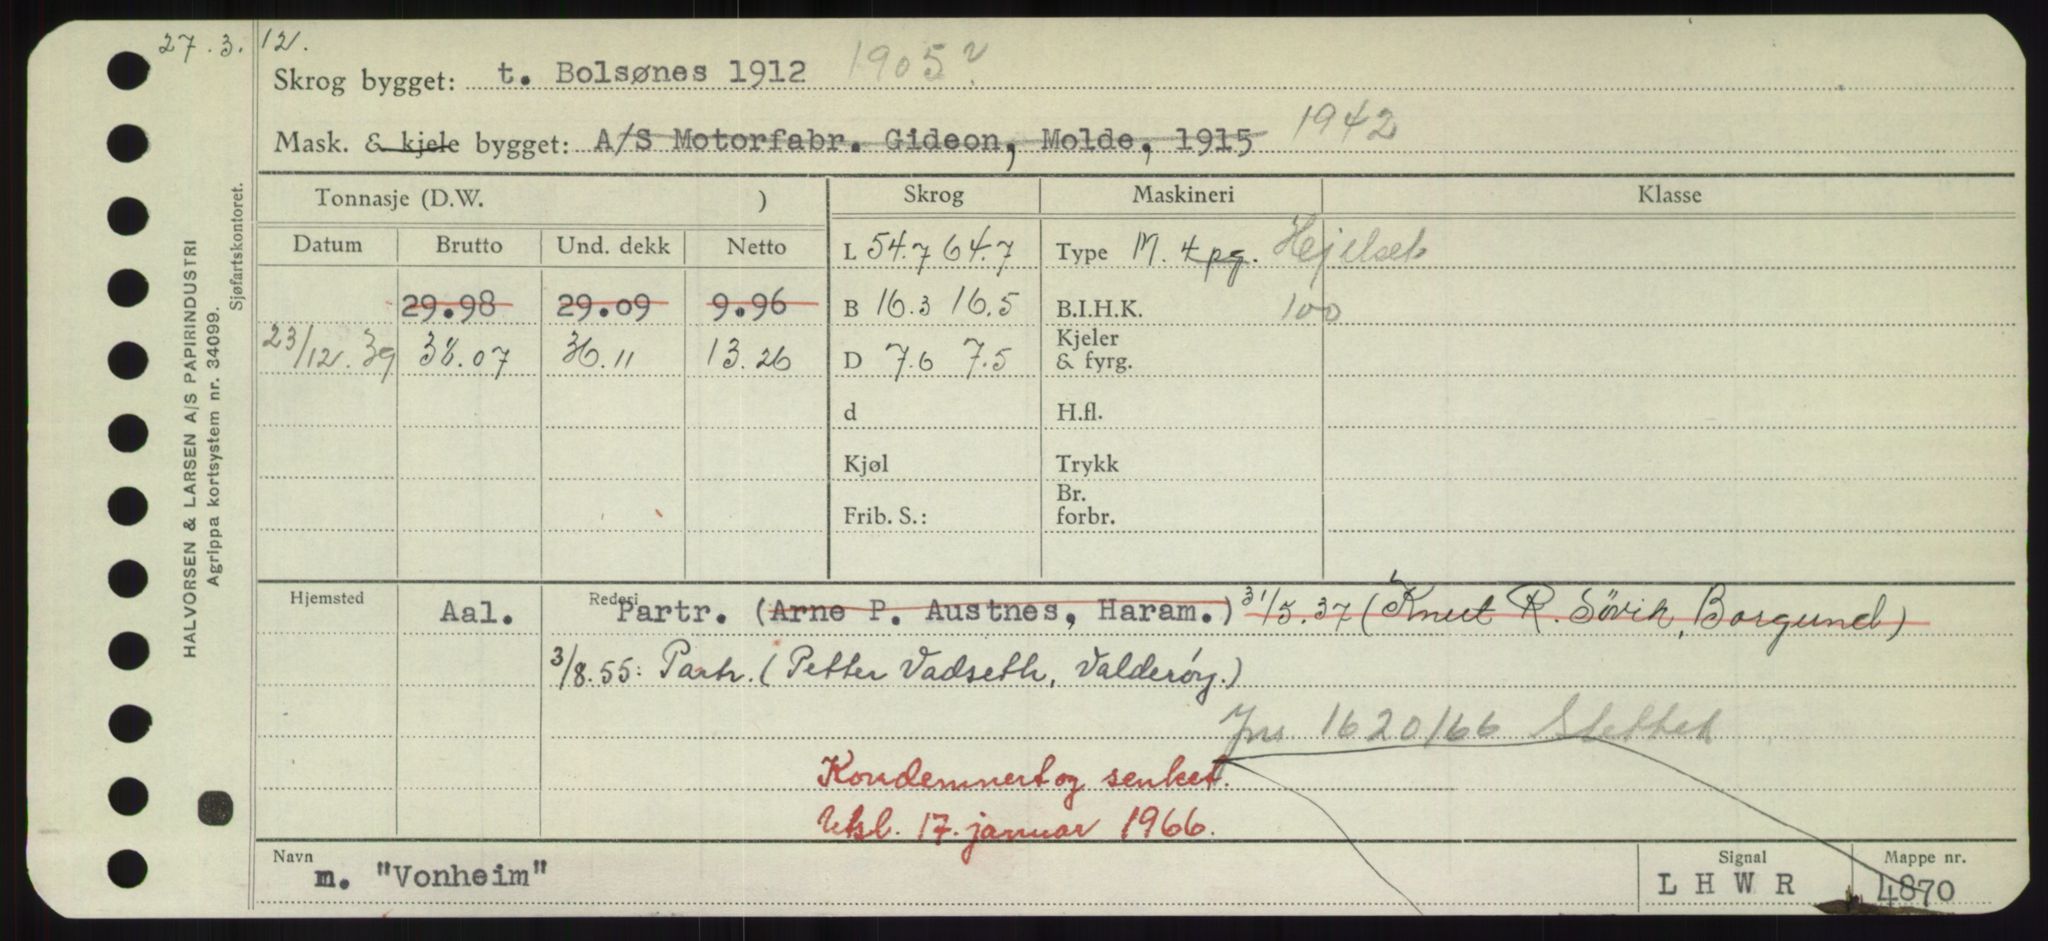 27.3.12.
Skrog bygget: t. Bolsønes 1912 1905?
Mask. & kjele bygget: A/S Motorfabr. Gideon, Molde, 1915 1942
Tonnasje (D.W. ) Skrog Maskineri Klasse
Datum Brutto Und. dekk Netto L 54.7 64.7 Type M. 4pg. Hjelset
29.98 29.09 9.96 B 16.3 16.5 B.I.H.K. 100
23/12.39 38.07 36.11 13.26 D 7.6 7.5 Kjeler & fyrg.
d H.fl.
Kjøl Trykk
Frib. S.: Br. forbr.
Hjemsted Aal. Rederi Partr. (Arne P. Austnes, Haram.) 31/5.37 (Knut R. Søvik, Borgund)
3/8.55: Partr. (Petter Vadseth, Valderøy.)
Jnr 1620/66 Slettet
Kondemnert og senket.
Utsl. 17. januar 1966.
Navn m. "Vonheim" Signal LHWR Mappe nr. 4870
HALVORSEN & LARSEN A/S PAPIRINDUSTRI
Agrippa kortsystem nr. 34099.
Sjøfartskontoret.